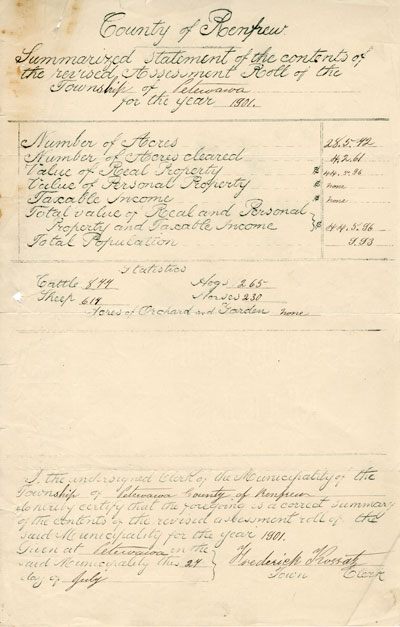 County of Renfrew
Summarized statement of the contents of
the revised Assessment Roll of the
Township of Petewawa
for the year 1901.
Number of Acres 28.5.42
Number of Acres cleared 4.2.61
Value of Real Property $ 44.5.96
Value of Personal Property $ none
Taxable Income $ none
Total value of Real and Personal
Property and Taxable Income } $ 44.5.96
Total Population
Statistics
Cattle 844 Hogs 265
Sheep 614 Horses 230
Acres of Orchard and Garden none
I the undersigned Clerk of the Municipality of the
Township of Petewawa County of Renfrew
do hereby certify that the foregoing is a correct summary
of the contents of the revised assessment roll of the
said Municipality for the year 1901.
Given at Petewawa in the
said Municipality this 24 } Frederick Kossatz
day of July Town Clerk